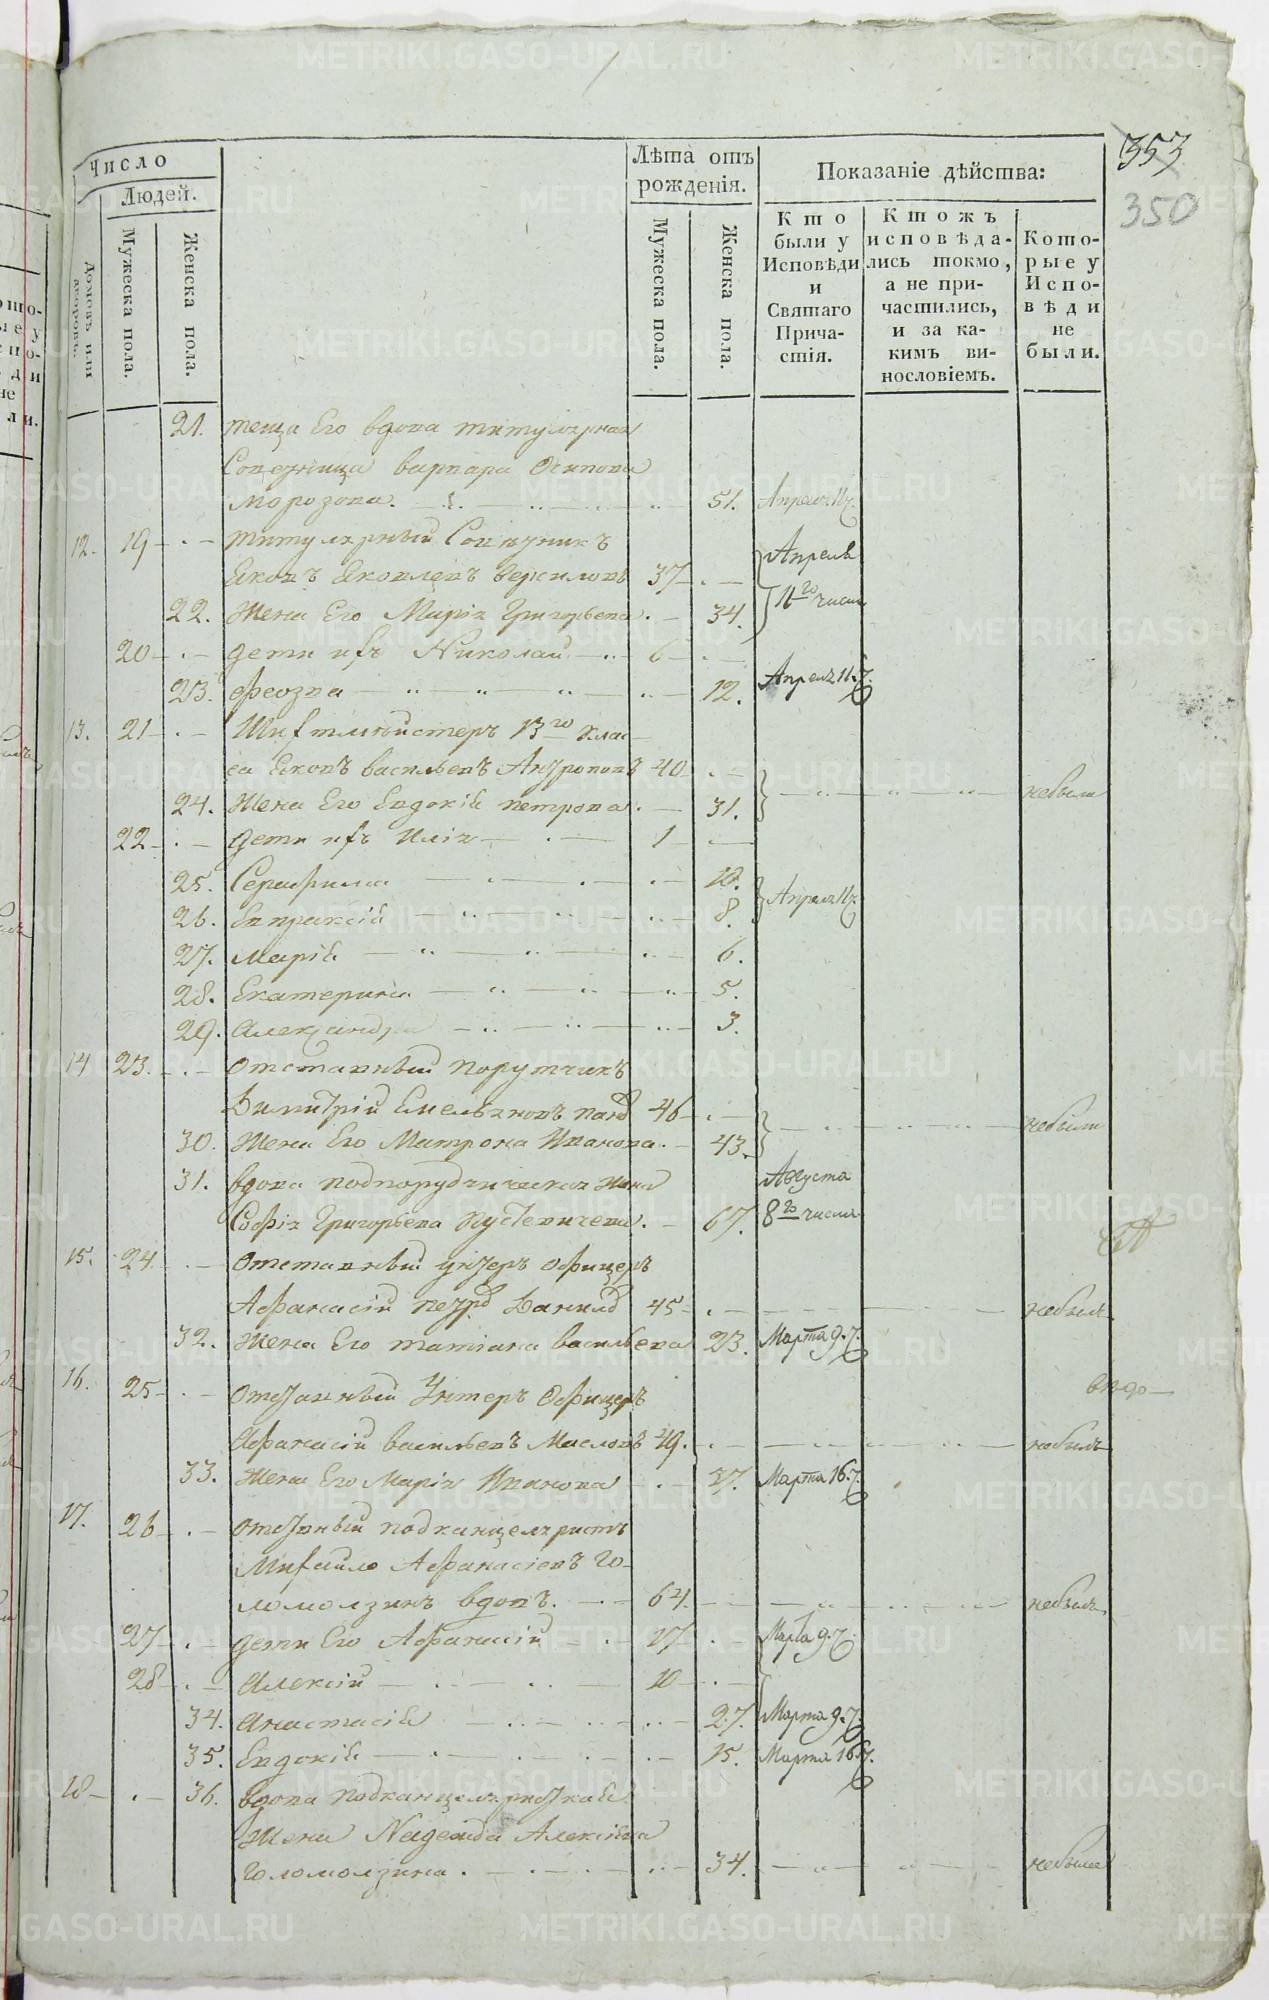 353
350
Число
Людей.
Домовъ или дворовъ.
Мужеска пола.
Женска пола.
Лѣта отъ рожденія.
Мужеска пола.
Женска пола.
Показаніе дѣйства:
Кто были у Исповѣди и Святаго Причастія.
Ктожъ исповѣдались токмо, а не причастились, и за какимъ винословіемъ.
Которые у Исповѣди не были.
21. теща Его вдова титулярная
Советница варвара Осипова
Морозова. 51. Апреля 11 ч.
12. 19 титулярный Советникъ
Яковъ Яковлевъ 37 Апреля
22. Жена Его Марія Григорьева. 34. 11го числа
20 дети ихъ Николай 6
23. Феозва 12. Апреля 11. ч.
13. 21 Шихтмейстеръ 13го клас-
са Яковъ васильевъ Антроповъ 40
24. Жена Его Евдокія петрова. 31. небыли
22 дети ихъ Илія 1
25. Серафима 10.
26. Евпраксія 8. Апреля 11 ч.
27. Марія 6.
28. Екатерина 5.
29. Александра 3.
14 23. отставный порутчикъ
Димитрій Емельяновъ 46
30. Жена Его Матрона Иванова. 43. небыли
31. вдова подпорудчическая жена Августа
Софія Григорьева 67. 8го числа
15. 24 отставный унтеръ офицеръ
Афанасій 45 небылъ
32. Жена Его татіана васильева 23. Марта 9. ч.
16. 25 отставный Унтеръ Офицеръ
Афанасій васильевъ Масловъ 49. небылъ
33. Жена Его Марія Иванова 37. Марта 16. ч.
17. 26 отставный подканцеляристъ
Михайло Афанасіевъ Го-
ломолзинъ вдовъ. 64. небылъ
27 дети Его Афанасій 17 Марта 9. ч.
28 Алексій 10
34. Анастасія 27. Марта 9. ч.
35. Евдокія 15. Марта 16 ч.
18 36. вдова подканцеляристская
Жена Надежда Алексіева
Голомолзина. 34. небыла
METRIKI.GASO-URAL.RU